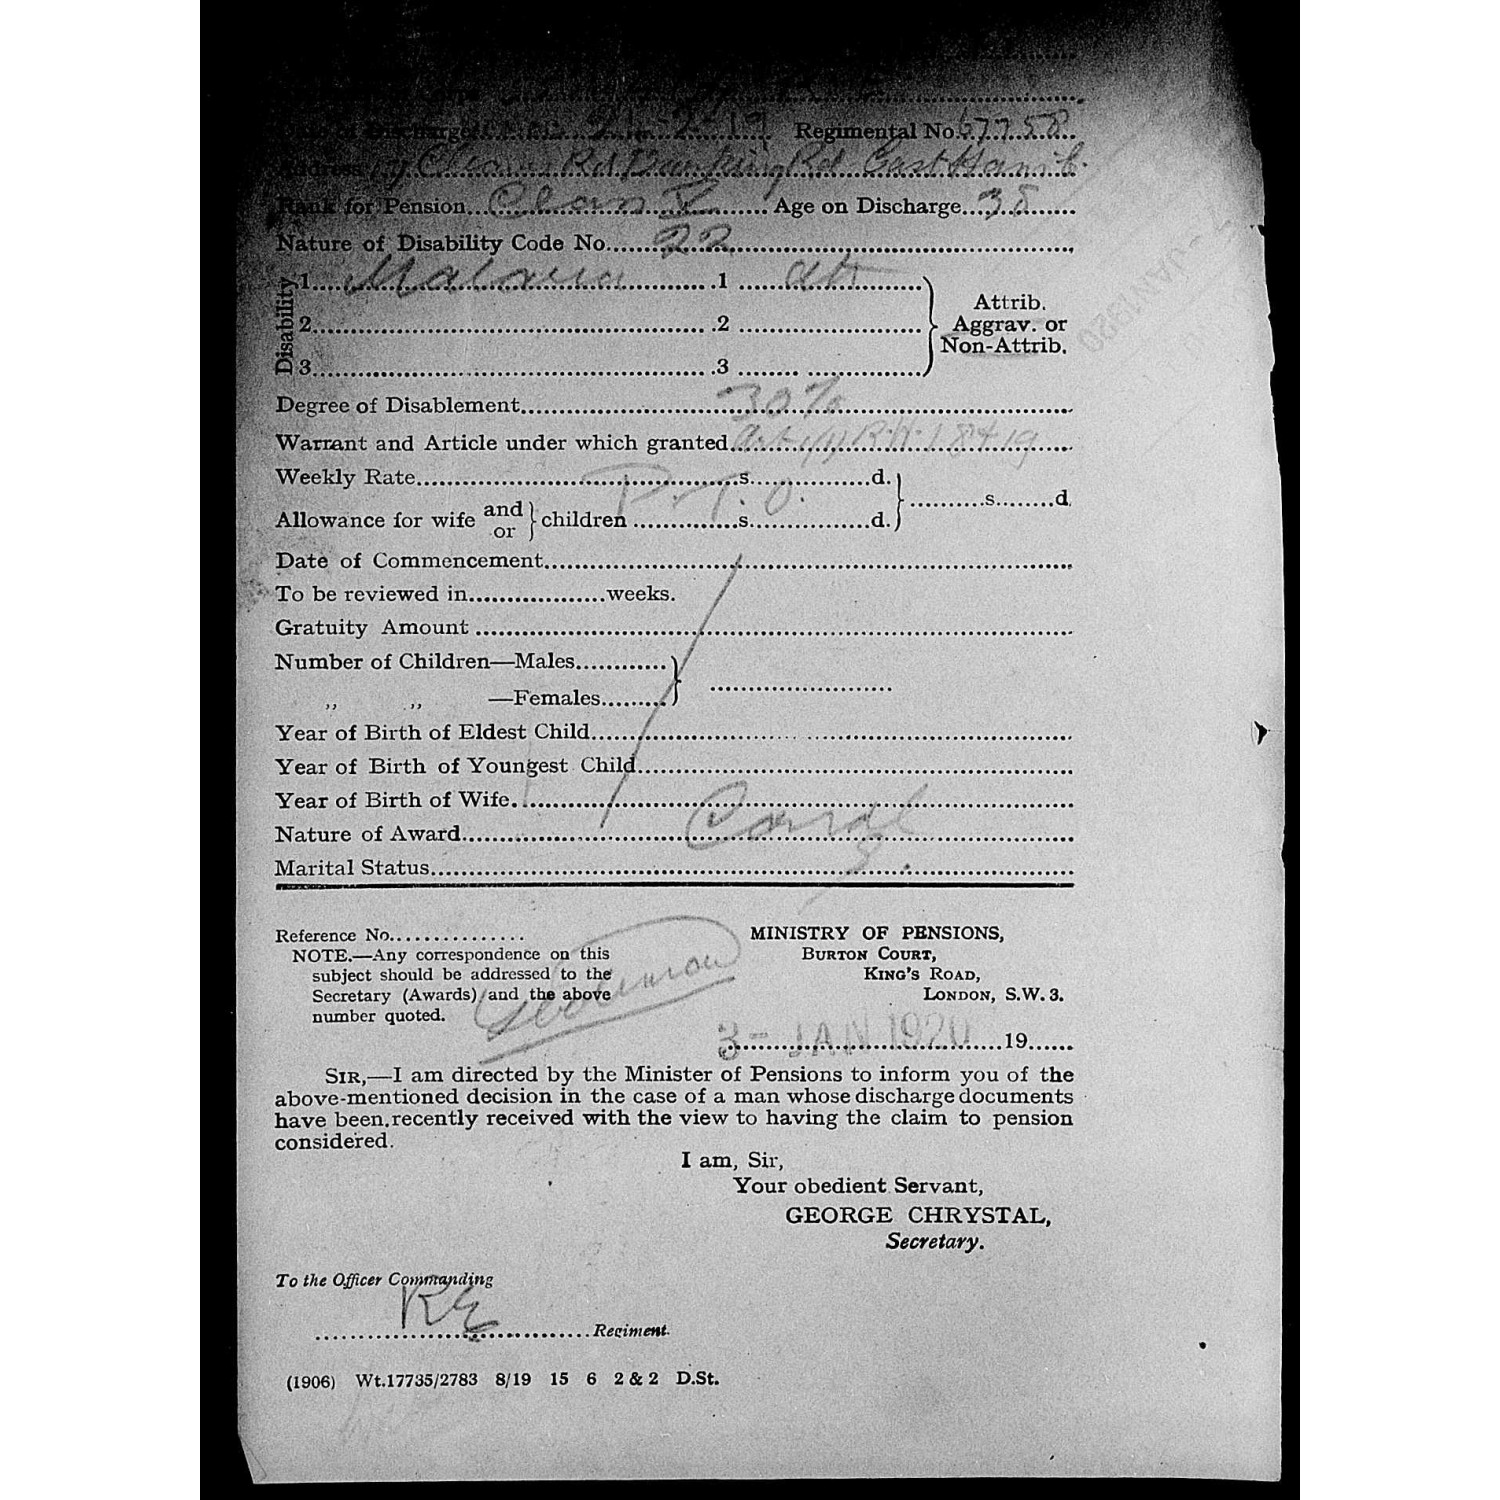 Date of Discharge 21-2-19 Regimental No. 67758
Address Rd Barking Rd East Ham
Rank for Pension Class V Age on Discharge 38
Nature of Disability Code No. 22
Disability
1 Malaria 1 att
2 2
3 3
Attrib.
Aggrav. or
Non-Attrib.
Degree of Disablement 30%
Warrant and Article under which granted Art 1(1) R.W. 1919
Weekly Rate s. d.
P.T.O.
s. d.
Allowance for wife and or children s. d.
Date of Commencement
To be reviewed in weeks.
Gratuity Amount
Number of Children—Males
,, ,, —Females
Year of Birth of Eldest Child
Year of Birth of Youngest Child
Year of Birth of Wife
Nature of Award Condl
Marital Status S.
Reference No.
NOTE.—Any correspondence on this
subject should be addressed to the
Secretary (Awards) and the above
number quoted.
MINISTRY OF PENSIONS,
BURTON COURT,
KING'S ROAD,
LONDON, S.W.3.
3- JAN 1920 19
SIR,—I am directed by the Minister of Pensions to inform you of the
above-mentioned decision in the case of a man whose discharge documents
have been recently received with the view to having the claim to pension
considered.
I am, Sir,
Your obedient Servant,
GEORGE CHRYSTAL,
Secretary.
To the Officer Commanding
RE
Regiment.
(1906) Wt.17735/2783 8/19 15 6 2 & 2 D.St.
JAN 1920